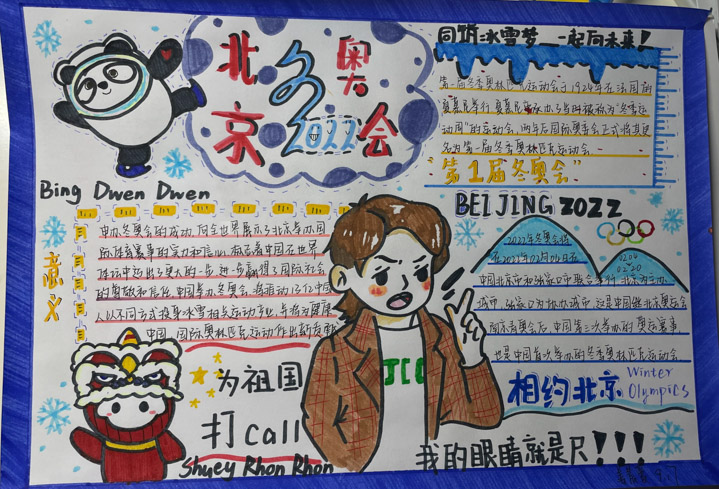 北京
冬奥会
2022
Bing Dwen Dwen
同筑冰雪梦 一起向未来!
第一届冬季奥林匹克运动会于1924年在法国的
夏慕尼举行 夏慕尼承办了当时被称为"冬季运
动周"的运动会,两年后国际奥委会正式将其更
名为第一届冬季奥林匹克运动会
"第1届冬奥会"
意义
申办冬奥会的成功,向全世界展示了北京举办国
际体育赛事的实力和信心,
的尊敬和信任 中国举办冬奥会,将带动3亿中国
人以不同方式投身冰雪相关运动
中国、国际奥林匹克运动作出新贡献
BEIJING 2022
2022年冬奥会将
在2022年02月04日在
0204
02-20
中国北京市和张家口市联合举行 北京为主办
城市,张家口为协办城市,这是中国继北京奥运会
南京青奥会后,中国第三次举办的奥运赛事
也是中国首次举办的冬季奥林匹克运动会
相约北京
Winter
Olympics
为祖国
打call
Shuey Rhon Rhon
JCO
我的眼睛就是尺!!!